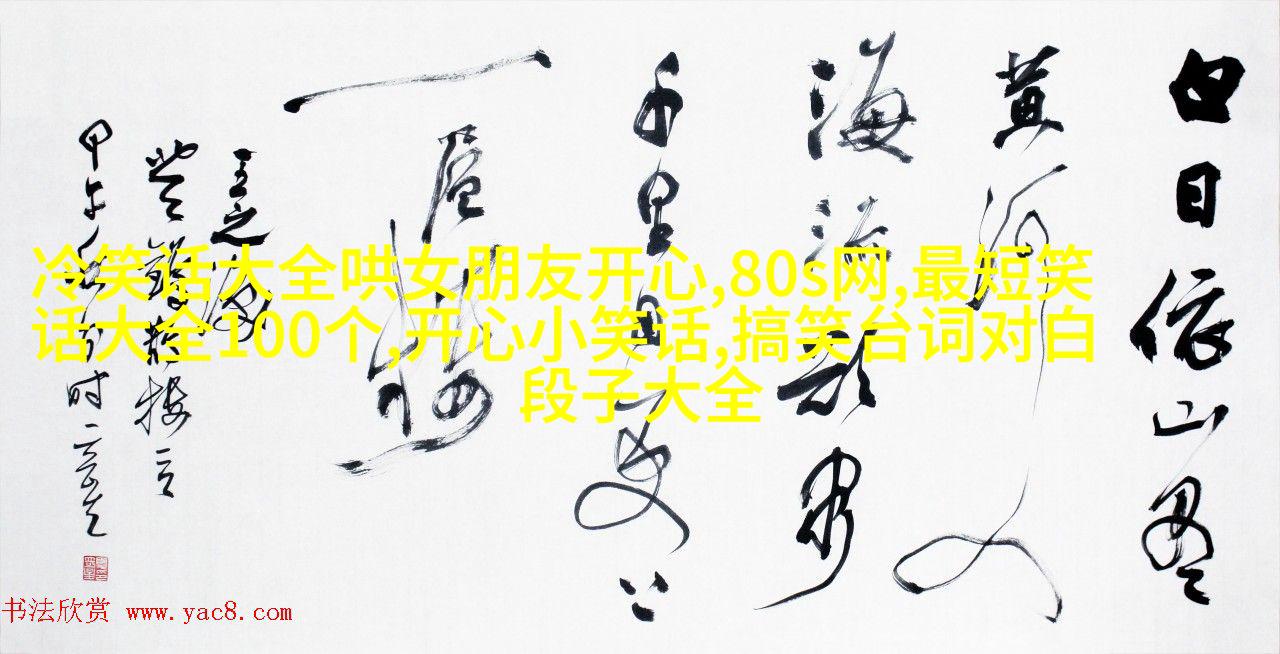 白日依山尽
黄河入
海流欲穷
千里目更上
一层楼
王之涣
甲午
冷笑话大全哄女朋友开心,80s网,最短笑
话大全100个,开心小笑话,搞笑台词对白
段子大全
书法欣赏 www.yac8.com